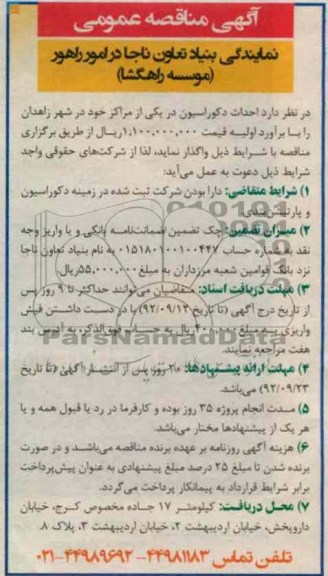 آگهی مناقصه عمومی
نمایندگی بنیاد تعاون ناجا در امور راهور
(موسسه راهگشا)
در نظر دارد احداث دکوراسیون در یکی از مراکز خود در شهر زاهدان
را با برآورد اولیه قیمت ۱,۱۰۰,۰۰۰,۰۰۰ریال از طریق برگزاری
مناقصه با شرایط ذیل واگذار نماید، لذا از شرکت‌های حقوقی واجد
شرایط ذیل دعوت به عمل می‌آید:
۱) شرایط متقاضی: دارا بودن شرکت ثبت شده در زمینه دکوراسیون
و پارتیشن‌بندی.
۲) میزان تضمین: چک تضمین ضمانت‌نامه بانکی و یا واریز وجه
نقد به شماره حساب ۰۱۵۱۸۰۱۰۰۱۰۰۴۴۷ به نام بنیاد تعاون ناجا
نزد بانک قوامین شعبه مرزداران به مبلغ ۵۵,۰۰۰,۰۰۰ریال
۳) مهلت دریافت اسناد: متقاضیان می‌توانند حداکثر تا ۹ روز پس
از تاریخ درج آگهی (تا تاریخ ۹۲/۰۹/۱۳) با در دست داشتن فیش
واریزی به مبلغ ریال به حساب فوق‌الذکر، به آدرس بند
هفت مراجعه نمایند.
۴) مهلت ارائه پیشنهادها: ۲۰ روز پس از انتشار آگهی (تا تاریخ
۹۲/۰۹/۲۳) می‌باشد.
۵) مدت انجام پروژه ۳۵ روز بوده و کارفرما در رد یا قبول همه و یا
هر یک از پیشنهادها مختار می‌باشد.
۶) هزینه آگهی روزنامه بر عهده برنده مناقصه می‌باشد و در صورت
برنده شدن تا مبلغ ۲۵ درصد مبلغ پیشنهادی به عنوان پیش‌پرداخت
برابر شرایط قرارداد به پیمانکار پرداخت می‌گردد.
۷) محل دریافت: کیلومتر ۱۷ جاده مخصوص کرج، خیابان
داروپخش، خیابان اردیبهشت ۲، خیابان اردیبهشت ۳، پلاک ۸.
تلفن تماس ۴۴۹۸۱۱۸۳- ۴۴۹۸۹۶۹۲-۰۲۱
ParsNamadData